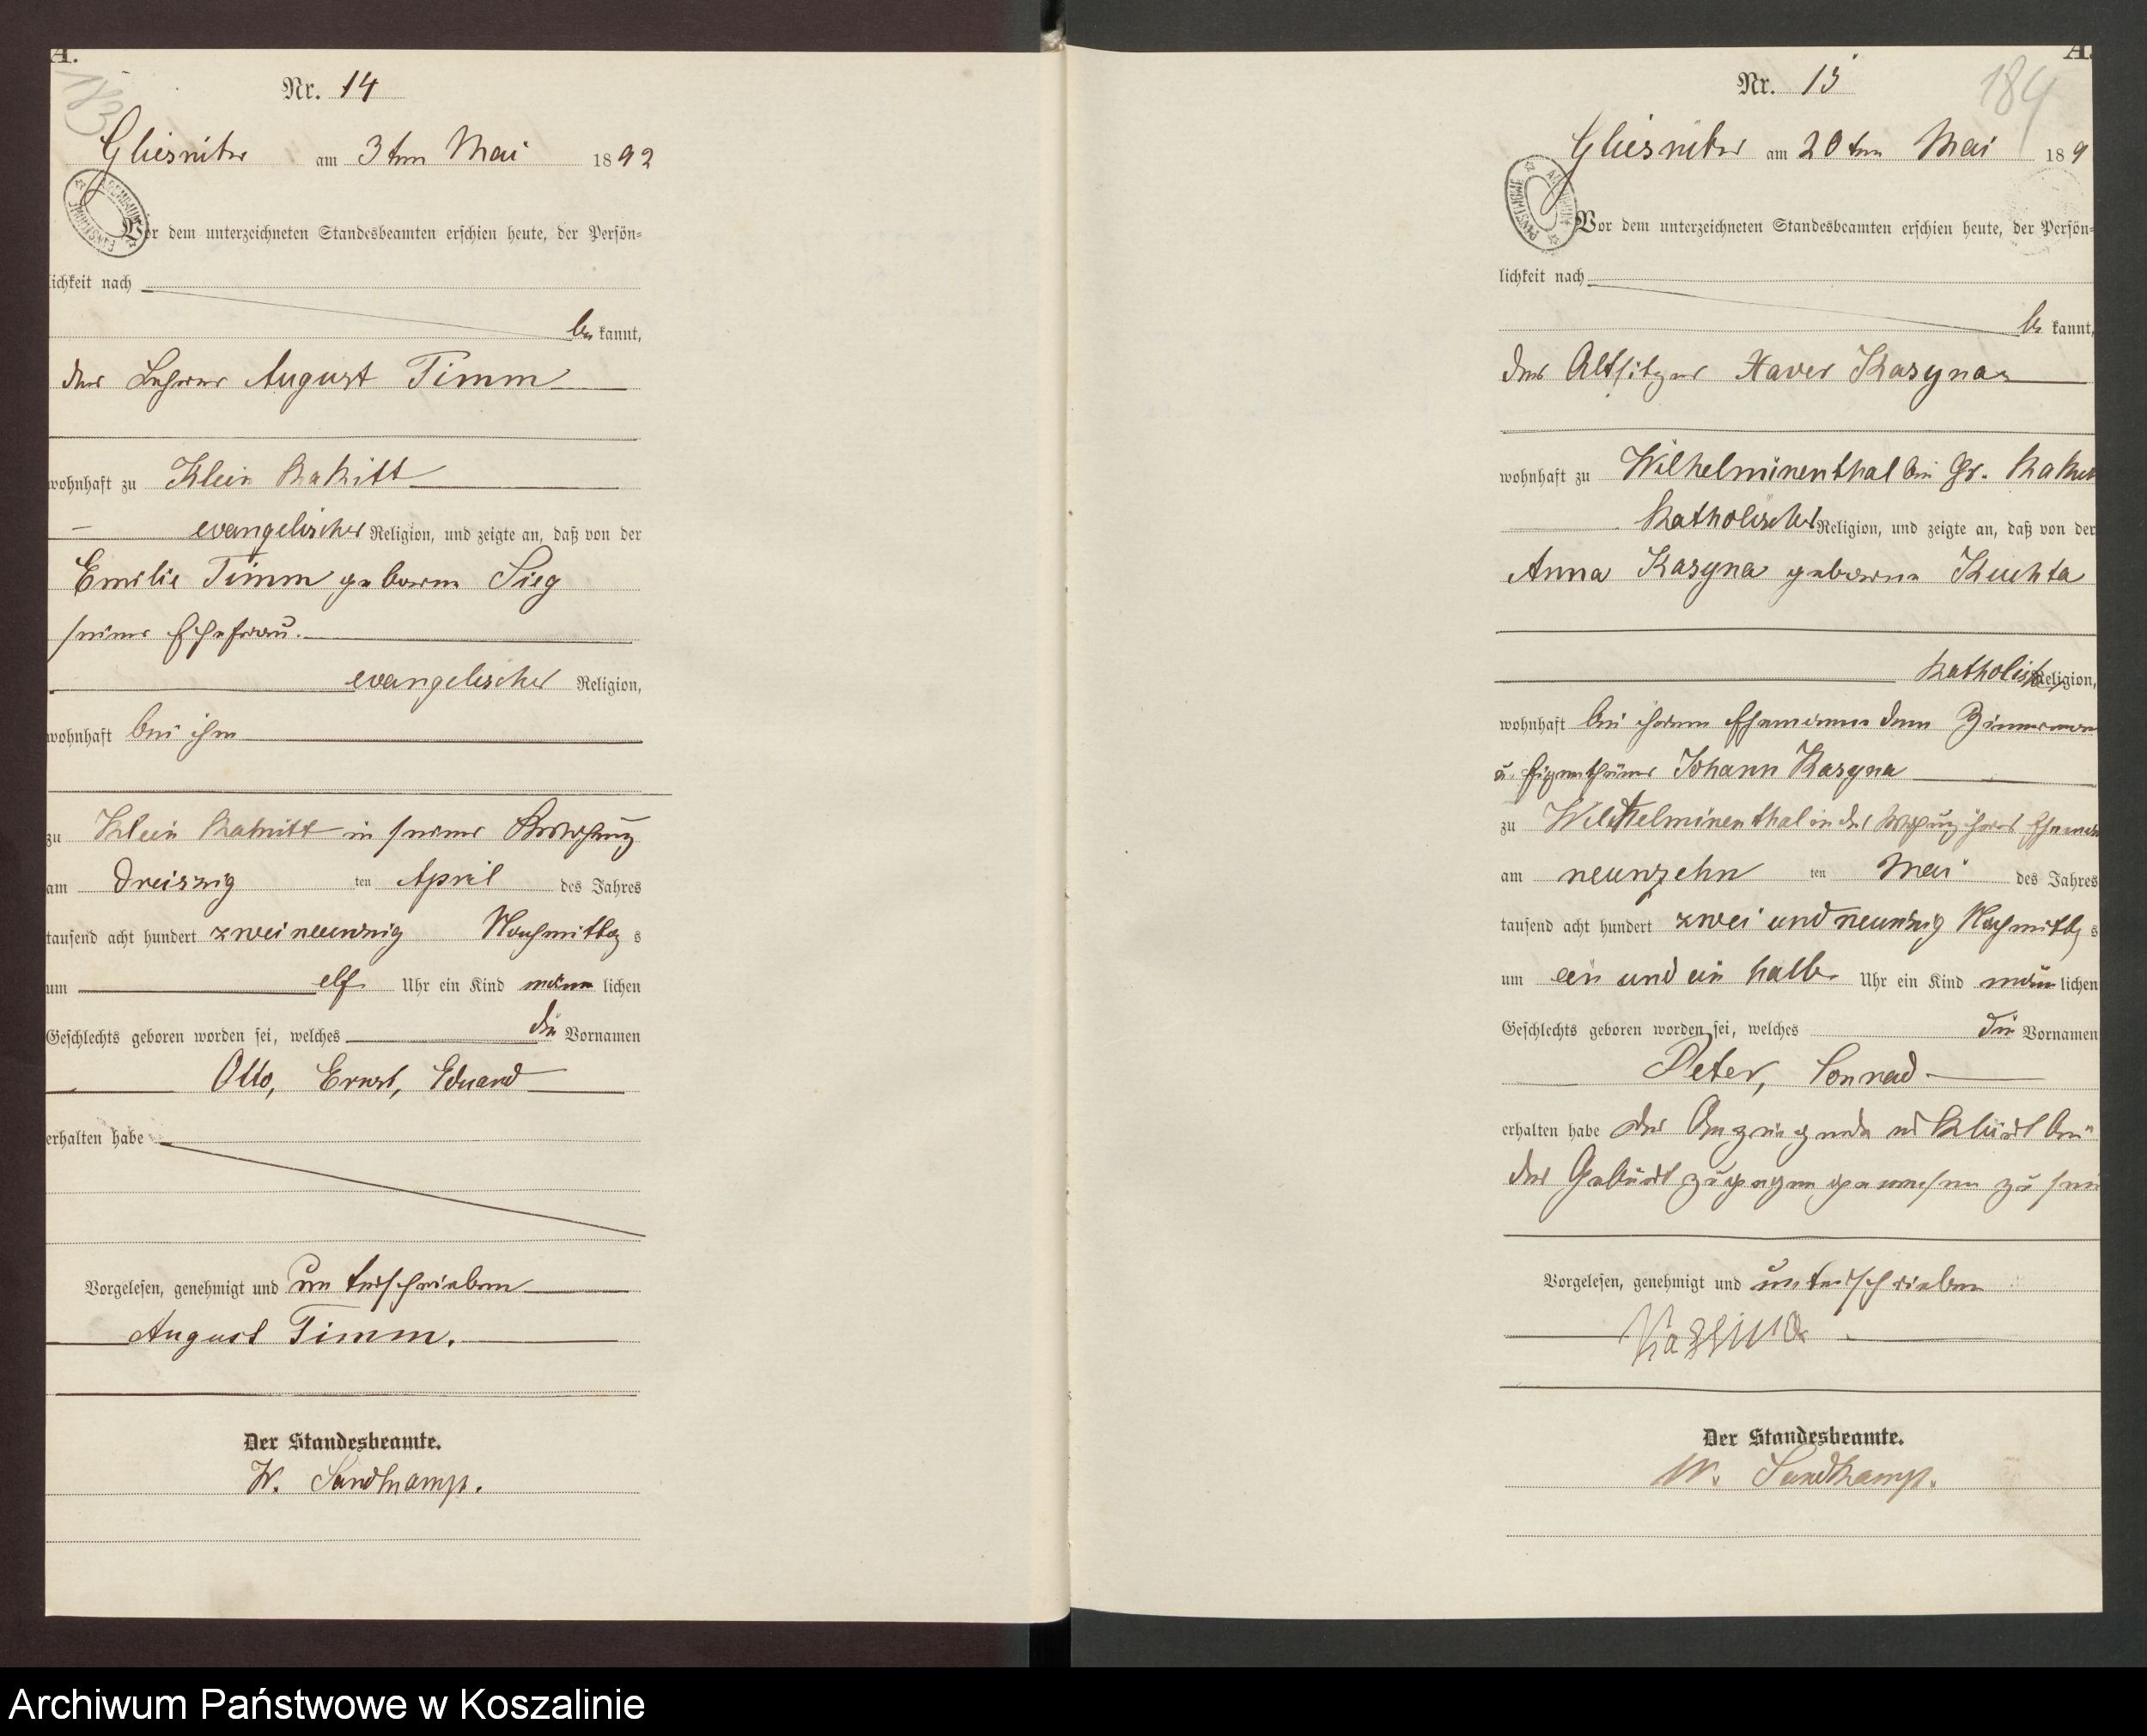 A.
183
Nr. 14
Gliesnitz am 3ten Mai 1892
ARCHIWUM PAŃSTWOWE
Vor dem unterzeichneten Standesbeamten erschien heute, der Persön-
lichkeit nach
be kannt,
der Lehrer August Timm
wohnhaft zu Klein Rakitt
evangelischer Religion, und zeigte an, daß von der
Emilie Timm geborne Sieg
seiner Ehefrau.
evangelischer Religion,
wohnhaft bei ihm
zu Klein Rakitt in seiner Behausung
am dreiszig ten April des Jahres
tausend acht hundert zwei neunzig Nachmittag s
um elf Uhr ein Kind männ lichen
Geschlechts geboren worden sei, welches die Vornamen
Otto, Ernst, Eduard
erhalten habe
Vorgelesen, genehmigt und unterschrieben
August Timm.
Der Standesbeamte.
W. Sandkamp.
A.
184
Nr. 15
Gliesnitz am 20ten Mai 189
ARCHIWUM PAŃSTWOWE
Vor dem unterzeichneten Standesbeamten erschien heute, der Persön-
lichkeit nach
be kannt,
der Altsitzer Xaver Kasyna
wohnhaft zu Wilhelminenthal bei Gr. Rakitt
katholischer Religion, und zeigte an, daß von der
Anna Kasyna geborne Kuchta
katholisch Religion,
wohnhaft bei ihrem Ehemanne dem Zimmermann
u. Eigenthümer Johann Kasyna
zu Wilhelminenthal in der Behausung ihres Ehemannes
am neunzehn ten Mai des Jahres
tausend acht hundert zwei und neunzig Nachmittag s
um ein und ein halb Uhr ein Kind männ lichen
Geschlechts geboren worden sei, welches die Vornamen
Peter, Conrad
erhalten habe der Anzeigende erklärt bei
der Geburt zugegen gewesen zu sein
Vorgelesen, genehmigt und unterschrieben
Der Standesbeamte.
W. Sandkamp.
Archiwum Państwowe w Koszalinie